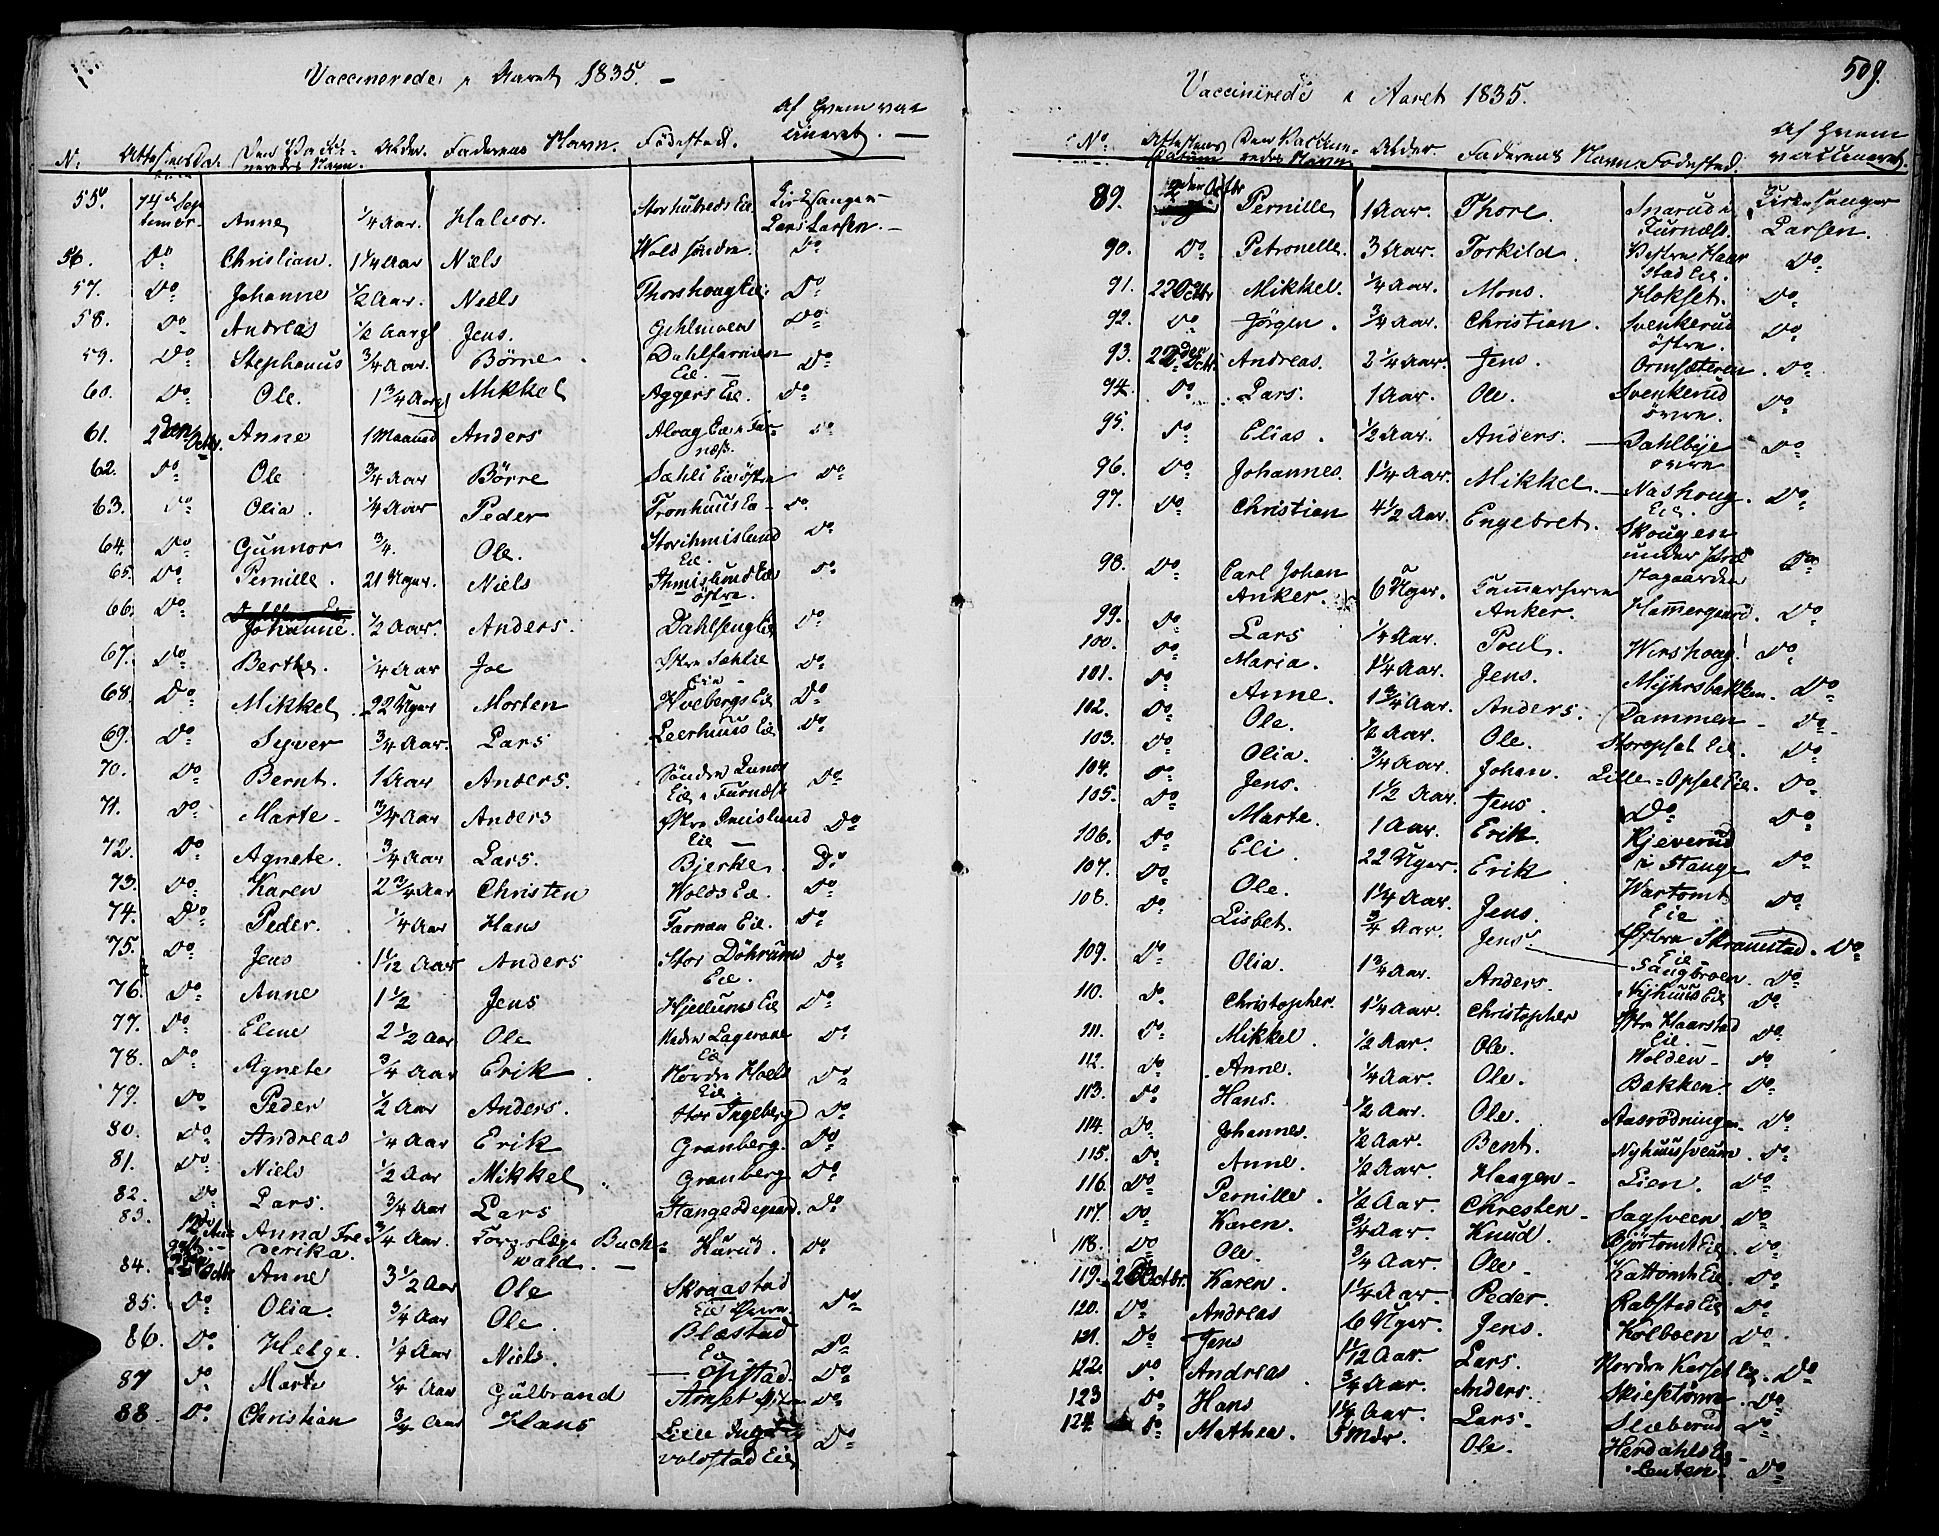 Vaccinerede i Aaret 1835. –
N: Attestens Da- Den Vacci- Alder. Faderens Navn. Födested. Af Hvem vac
neredes Navn. cineret. –
55. 14de Sep Anne 1/4 Aar. Halvor. Storhuseds Eie Kirkesanger
temer. Lars Larsen. –
56. Do Christian. 1 1/4 Aar Niels Wold Do
57. Do Johanne 1/2 Aar. Niels Thorshoug Eie. Do
58. Do Andreas 1/2 Aar Jens. Do
59. Do Stephanus 3/4 Aar. Börre Do
Eie. –
60. Do Ole. 1 3/4 Aar Mikkel Aggers Eie. Do
61. 2den Octbr. Anne 1 Maaned Anders Alvag Eie i Fur- Do
næss.
62. Do Ole 3/4 Aar Börre Sæhli Eie östre Do
63. Do Olia. 1/4 Aar Peder Tronhuus Ei Do
64. Do Gunnor 3/4. Ole. Storihmislund Do
Eie.
65. Do Pernille. 21 Uger. Niels Ihmislund Eie Do
östre.
66. Do Johanne. 1/2 Aar. Anders. Dahlseng Eie Do
67. Do Berthe. 1/4 Aar Joe Do
Eie –
68. Do Mikkel 22 Uger Morten Hvebergs Eie Do
69. Do Syver 3/4 Aar. Lars Leerhuus Eie Do
70. Do Bernt. 1 Aar Anders. Söndre Lunds Do
Eie i Furnæss
71. Do Marte – 3/4 Aar Anders Østre Imislund Do
Eie –
72. Do Agnete. 3/4 Aar Lars. Bjerke. Do
73. Do Karen 2 3/4 Aar Christen Wolds Eie. Do
74. Do Peder. 1/4 Aar Hans Farnæs Eie. Do
75. Do Jens 1 1/12 Aar Anders Stor Döhrums Do
Eie.
76. Do Anne 1 1/2 Jens Hjellums Eie Do
77. Do Eline 2 1/2 Aar Ole Nedre Lagerone Do
Eie
78. Do Agnete 3/4 Aar Erik Nordre Hoels Do
Eie
79. Do Peder 1/2 Aar Anders. Stor Ingeberg Do
80. Do Andreas 1/4 Aar Erik Granberg. Do
81. Do Niels 1/2 Aar Mikkel Granberg Do
82. Do Lars. 3/4 Aar Lars Stangeödegaard. Do
83. Anna Fre 3/4 Aar. Buch- Hürud. Do
derika. wald. –
84. Octbr Anne 3 1/2 Aar Ole Skraastad
Eie Do
85. Do Olia. 3/4 Aar Ole. Blæstad
Eie Do
86. Do Helge. 1/4 Aar Niels. – Opstad. Do
87 Do Marte 1/4 Aar Gulbrand Arnset Do
88 Do Christian 3/4 Aar Hans Lille Inga
voldstad Eie Do
509.
Vaccinirede i Aaret 1835.
No. Attestens Den Vaccine- Alder. Faderens Navn. Födested. Af Hvem
Datum redes Navn vaccineret.
89. Pernille 1 Aar. Thore. Snarud i Kirkesanger
Furnæss. Larsen.
90. Do Petronelle. 3 Aar. Torkild. Vestre Haar
stad Eie. Do
91. 22 Octbr Mikkel. 1/4 Aar. Mons. Hokset. Do
92. Do Jörgen. 3/4 Aar. Christian. Svenkerud Do
östre.
93. 22 Octbr. Andreas. 2 1/4 Aar. Jens. Ormsæteren. Do
94. Do Lars. 1 Aar. Ole. Svenkerud Do
övre.
95. Do Elias. 1/2 Aar. Anders. – Dahlbye Do
övre
96. Do Johannes. 1 1/4 Aar. Mikkel – Nashoug. Do
Eie.
97. Do Christian 4 1/2 Aar. Engebret. Skougen
under
98. Do Carl Johan 6 Uger. Do
Anker. Anker. Hammergaard. Do
99. Do Lars 1/4 Aar. Poul. Wirshoug. Do
100. Do Maria. 1 1/4 Aar. Jens. Myhrsbakken. Do
101. Do Anne. 1 3/4 Aar. Anders. Dammen – Do
102. Do Ole. 1/2 Aar. Ole. Storopsal Eie. Do
103. Do Olia. 3/4 Aar. Johan. Lille-Opsal Eie. Do
104. Do Jens. 1 1/2 Aar. Jens. Do Do
105. Do Marte. 1 Aar. Erik. Kjeverud
i Stange Do
106. Do Eli 22 Uger. Erik Wartomt
Eie Do
107. Do Ole. 1 1/4 Aar. Jens. Østre Skramstad. Do
Eie
108. Do Lisbet. 3/4 Aar. Jens. Sangbroen. Do
109. Do Olia. 1 3/4 Aar. Anders. Nyhuus Eie Do
110. Do Christopher. 1 1/4 Aar. Christopher Østre Haarstad Do
Eie. –
111. Do Mikkel. 1/2 Aar. Ole. Wolden – Do
112. Do Anne. 1/4 Aar. Ole. Bakken. Do
113. Do Hans. 1/2 Aar. Ole. Aasrödningen. Do
114. Do Johannes. 1/2 Aar. Bent. Nyhuusveum. Do
115. Do Anne. 1/2 Aar. Haagen – Lien. Do
116. Do Pernille. 1/2 Aar. Christen – Sagsveen. Do
117. Do Karen. 3/4 Aar. Knud. Bjørtomt Eie. Do
118. Do Ole. 3/4 Aar. Ole – Kattomt Eie. Do
119. Octbr. Karen. 1 1/4 Aar. Peder. Rabstad Eie Do
120. Do Andreas 6 Uger. Jens. Kolboen Do
121. Do Jens 1 1/12 Aar. Lars. Nordre Karset Eie. Do
122. Do Andreas. 3/4 Aar. Anders. Skiesetömn. Do
123 Do Hans 1 1/4 Aar. Lars – Slæberud Do
124. Do Mathea. 5 Mdr. Ole. Herdahls Eie –
Leuten – Do